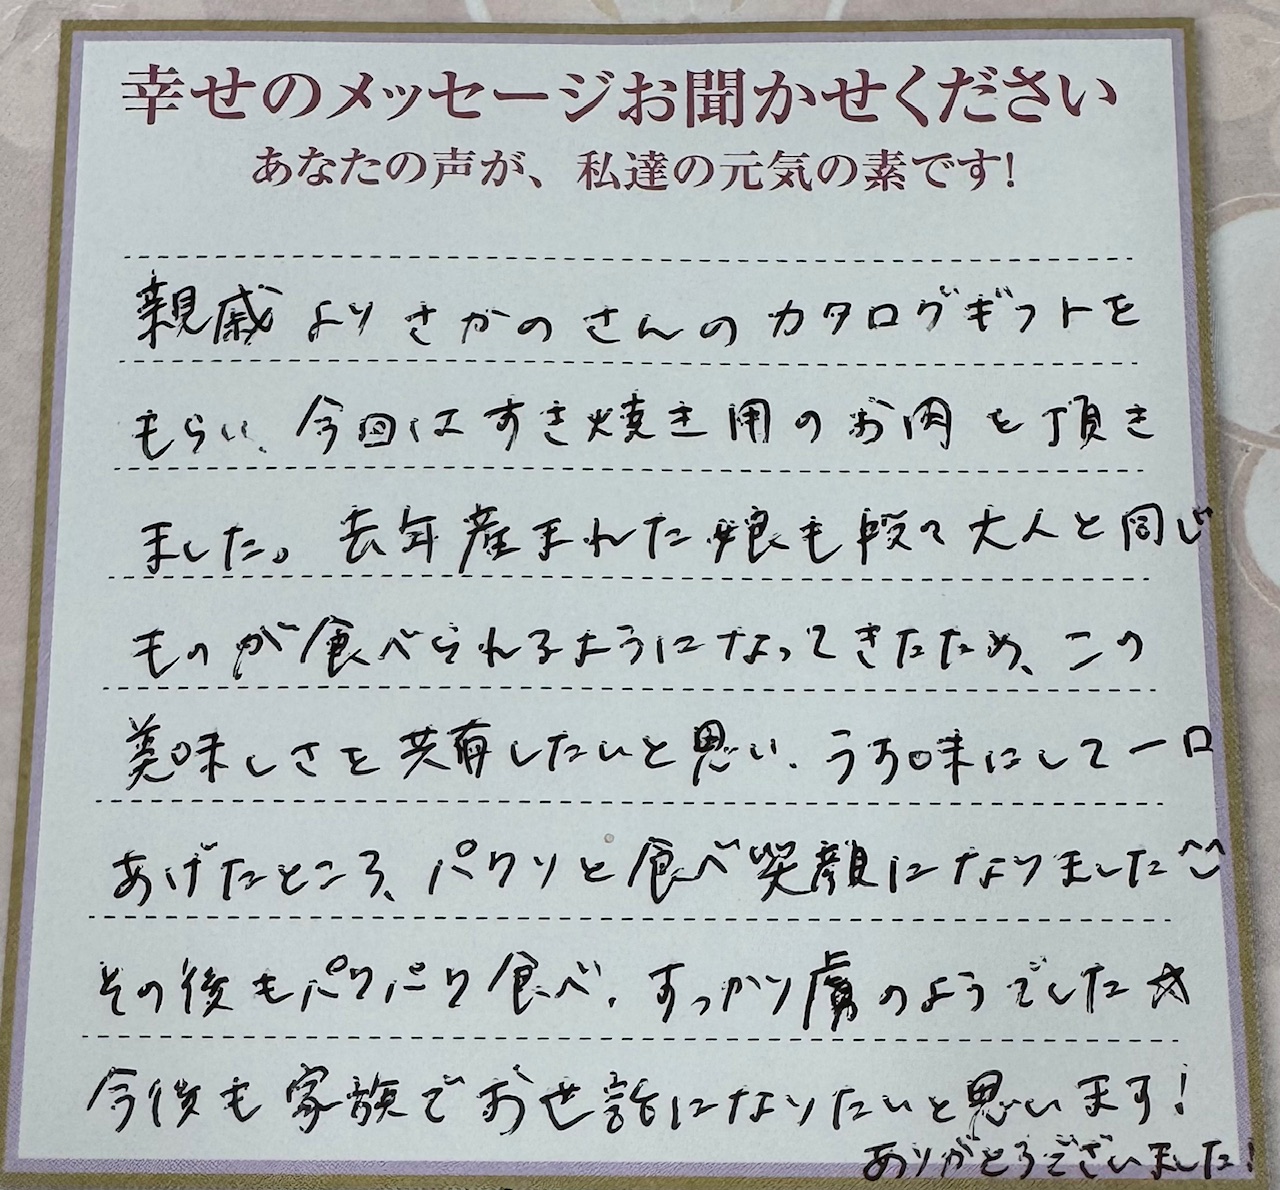 幸せのメッセージお聞かせください
あなたの声が、私達の元気の素です!
親戚よりさかのさんのカタログギフトを
もらい、今回はすき焼き用のお肉を頂き
ました。去年産まれた娘も段々大人と同じ
ものが食べられるようになってきたため、この
美味しさを共有したいと思い、うす味にして一口
あげたところ、パクリと食べ笑顔になりました^^
その後もパクパク食べ、すっかり虜のようでした☆
今後も家族でお世話になりたいと思います!
ありがとうございました!